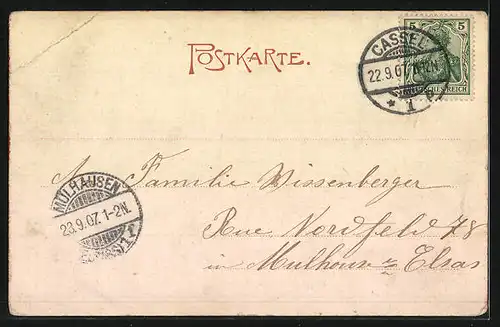 POSTKARTE.
5 5
DEUTSCHES REICH
CASSEL
22.9.07.
* 1
MÜLHAUSEN
23.9.07.1-2N.
An Familie Wissenberger
Rue Nordfeld 78
in Mulhouse Elsas